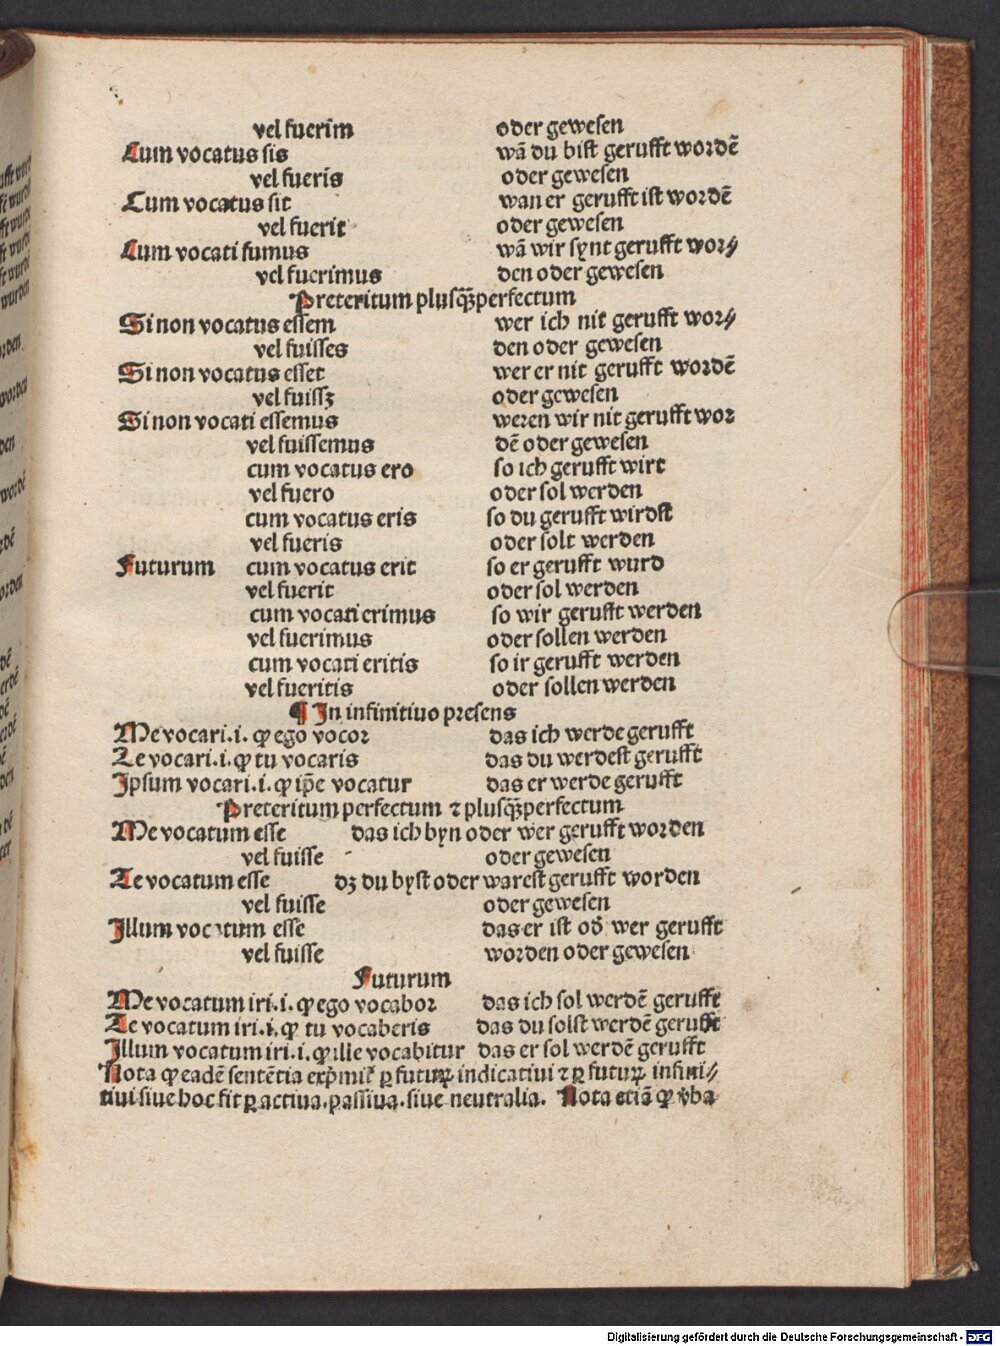 vel fuerim oder gewesen
Cum vocatus sis wā du bist gerufft wordē
vel fueris oder gewesen
Cum vocatus sit wan er gerufft ist wordē
vel fuerit oder gewesen
Cum vocati sumus wā wir synt gerufft wor⸗
vel fuerimus den oder gewesen
Preteritum plusq̃ꝫperfectum
Si non vocatus essem wer ich nit gerufft wor⸗
vel fuisses den oder gewesen
Si non vocatus esset wer er nit gerufft wordē
vel fuissꝫ oder gewesen
Si non vocati essemus weren wir nit gerufft wor
vel fuissemus dē oder gewesen
cum vocatus ero so ich gerufft wirt
vel fuero oder sol werden
cum vocatus eris so du gerufft wirdst
vel fueris oder solt werden
Futurum cum vocatus erit so er gerufft wurd
vel fuerit oder sol werden
cum vocati erimus so wir gerufft werden
vel fuerimus oder sollen werden
cum vocati eritis so ir gerufft werden
vel fueritis oder sollen werden
¶ In infinitiuo presens
Me vocari .i. ꝙ ego vocor das ich werde gerufft
Te vocari .i. ꝙ tu vocaris das du werdest gerufft
Ipsum vocari .i. ꝙ ip̄e vocatur das er werde gerufft
Preteritum perfectum ⁊ plusq̃ꝫperfectum
Me vocatum esse das ich byn oder wer gerufft worden
vel fuisse oder gewesen
Te vocatum esse dꝫ du byst oder warest gerufft worden
vel fuisse oder gewesen
Illum vocatum esse das er ist od̕ wer gerufft
vel fuisse worden oder gewesen
Futurum
Me vocatum iri .i. ꝙ ego vocabor das ich sol werdē gerufft
Te vocatum iri .i. ꝙ tu vocaberis das du solst werdē gerufft
Illum vocatum iri .i. ꝙ ille vocabitur das er sol werdē gerufft
Nota ꝙ eadē sentētia exp̃mit̃ ꝑ futuꝝ indicatiui ⁊ ꝑ futuꝝ infini⸗
tiui siue hoc fit ꝑ actiua. passiua. siue neutralia. Nota etiā ꝙ v̕ba
Digitalisierung gefördert durch die Deutsche Forschungsgemeinschaft - DFG